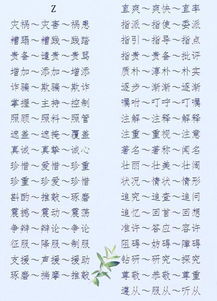 Z
灾祸～灾害～祸患
糟蹋～糟践～践踏
责备～谴责～责骂
增加～添加～增添
诈骗～欺骗～欺诈
掌握～主持～控制
照顾～照料～照管
遮盖～遮掩～覆盖
真诚～真挚～诚心
珍惜～爱惜～珍重
珍重～珍爱～爱惜
斟酌～推敲～琢磨
震撼～震动～震荡
争辩～辩论～争论
征服～降服～制服
支援～声援～援助
琢磨～揣摩～推敲
直爽～爽快～直率
指派～指使～委派
指引～指导～指点
指责～责备～批评
质朴～淳朴～朴实
逐步～逐渐～逐渐
嘱咐～叮咛～叮嘱
注解～注释～解释
注重～重视～注意
著名～著称～闻名
壮丽～壮美～壮阔
状况～情状～情形
追究～追查～追问
追忆～回首～回想
准许～答应～容许
阻碍～妨碍～障碍
钻研～研究～探究
尊敬～恭敬～尊重
遵从～服从～听从